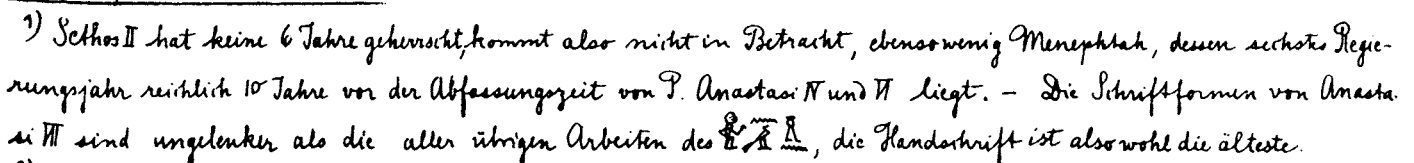 1) Sethos II hat keine 6 Jahre geherrscht, kommt also nicht in Betracht, ebensowenig Menephtah, dessen sechstes Regie-
rungsjahr reichlich 10 Jahre vor der Abfassungszeit von P. Anastasi IV und VI liegt. – Die Schriftformen von Anasta-
si VII sind ungelenker als die aller übrigen Arbeiten des , die Handschrift ist also wohl die älteste.